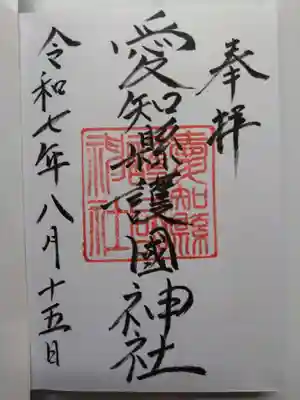 奉拝
愛知縣護國神社
愛知縣護國神社
令和七年八月十五日